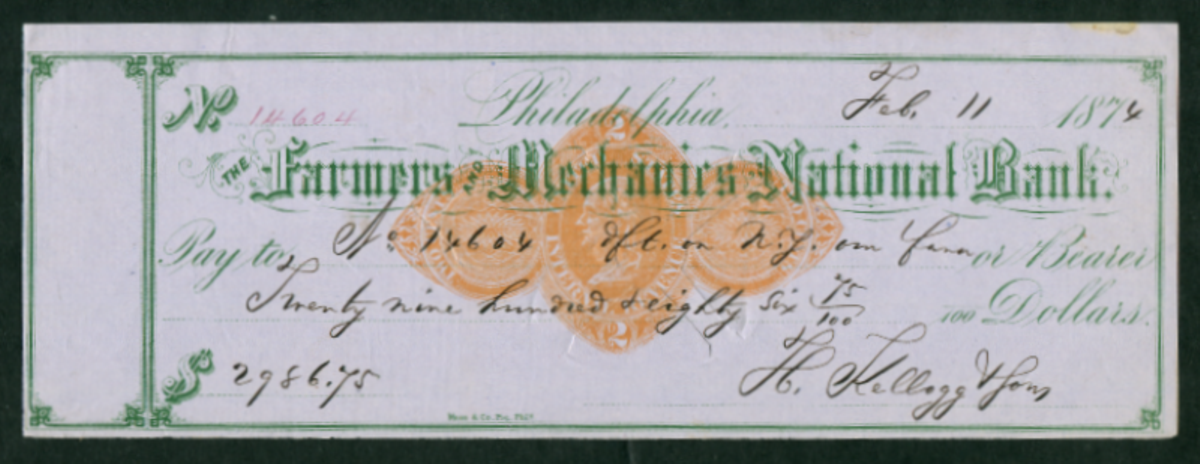 No. 14604 Philadelphia, Feb. 11 1874
THE Farmers AND Mechanics National Bank.
Pay to No 14604 dft. on N.Y. our favor or Bearer
Twenty nine hundred & eighty six 75/100 100 Dollars.
$ 2986.75 H. Kellogg & Sons
2
INTER
2